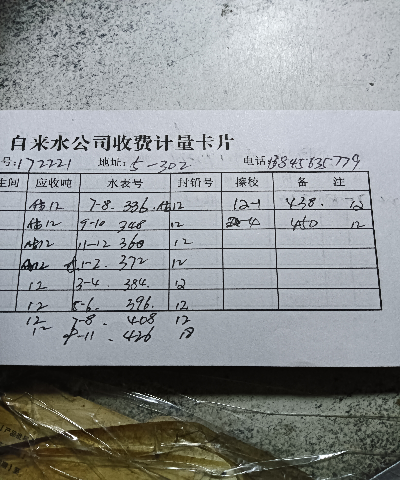 自来水公司收费计量卡片
号:172221 地址: 5-302 电话13845635779
间 应收吨 水表号 封铅号 擦校 备 注
估12 7-8. 336. 估12 12-1 438. 12
估12 9-10 348 12 2-4 450 12
估12 11-12 360 12
12 1-2. 372 12
12 3-4. 384. 12
12 5-6. 396. 12
12 7-8. 408 12
12 9-11. 426 18